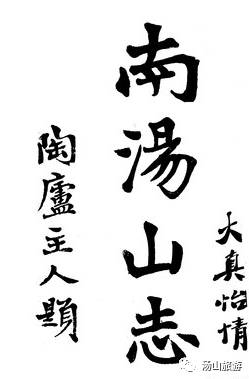 大真怡情
南湯山志
陶廬主人題
汤山旅游